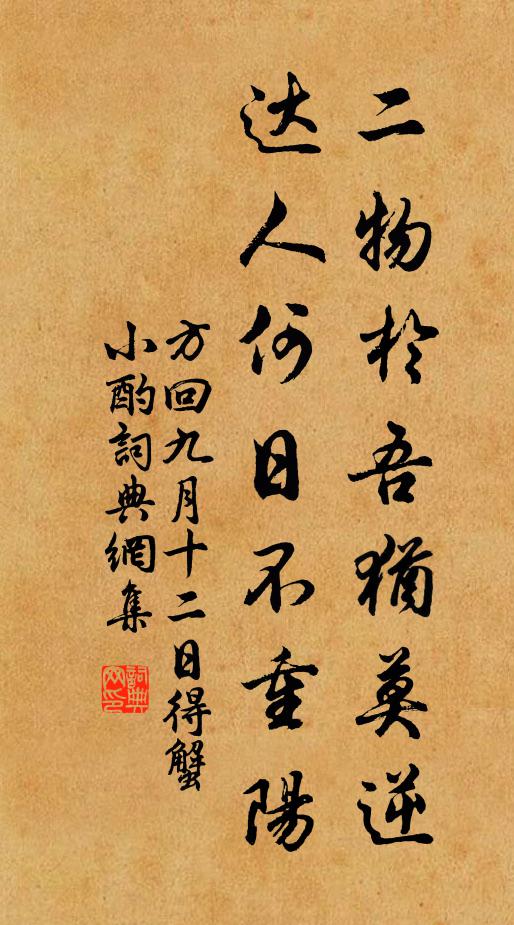 二物於吾猶莫逆
达人何日不重陽
方回九月十二日得蟹
小酌詞典網集
詞典
网印